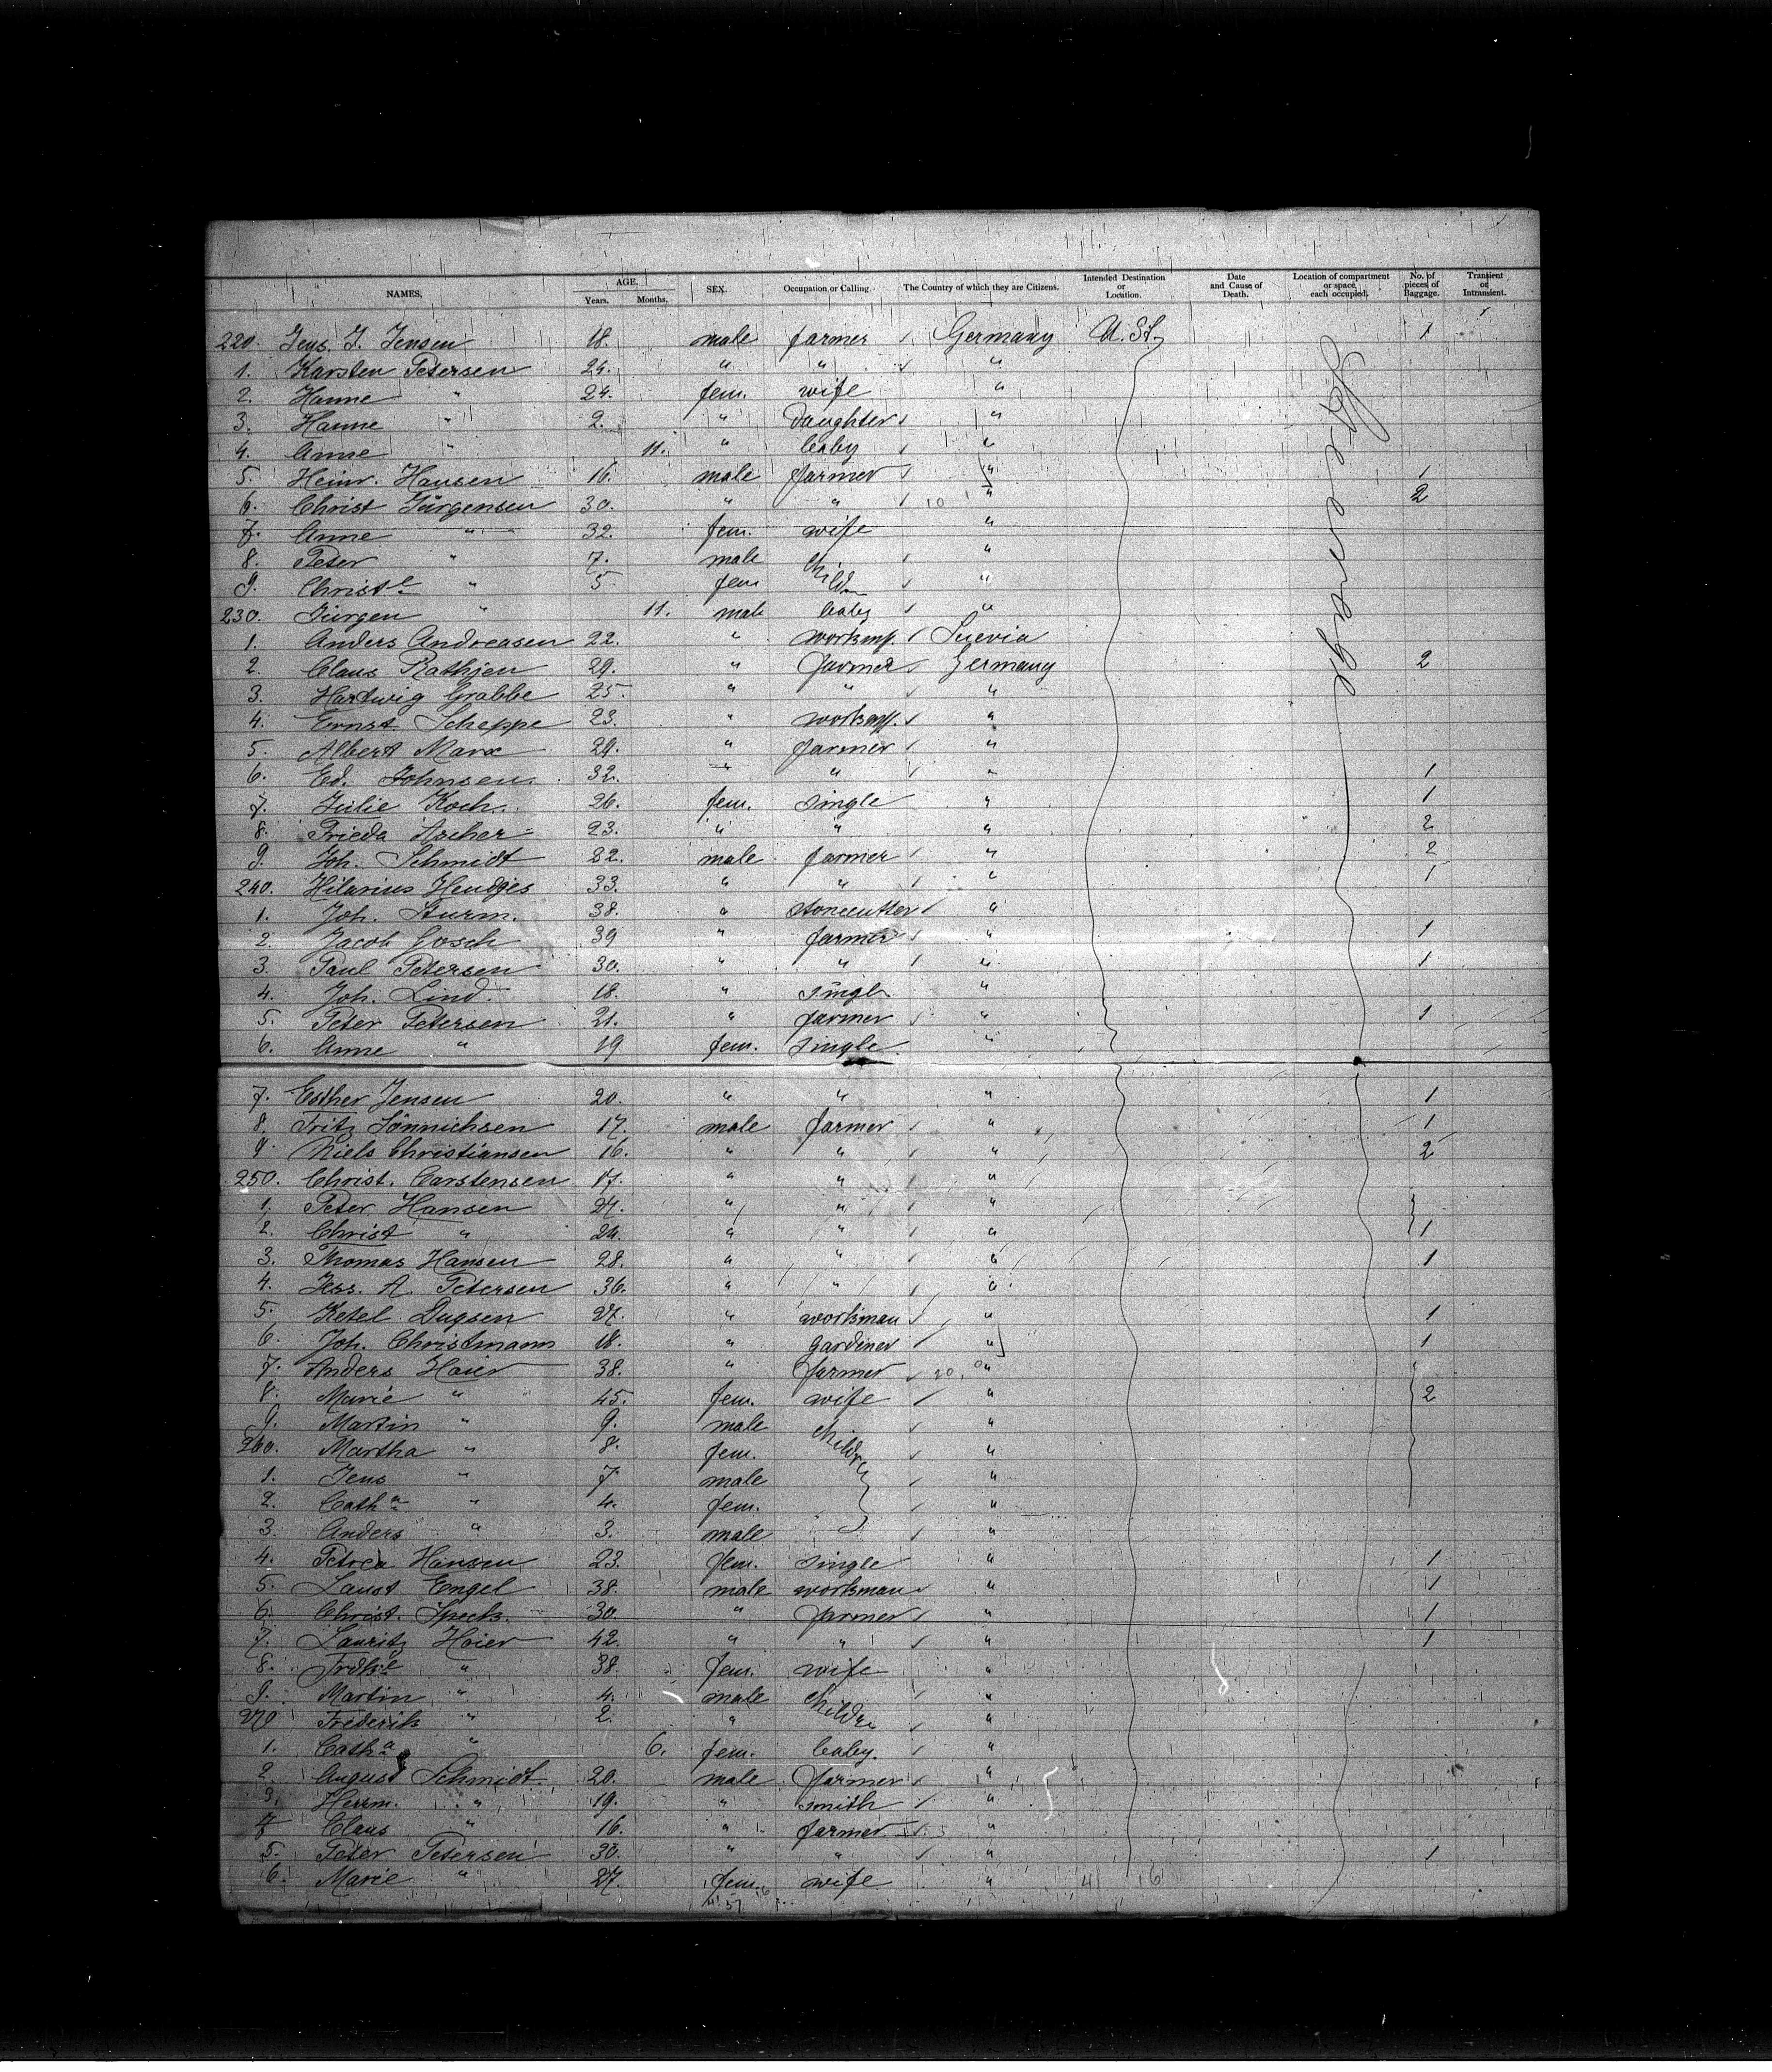 NAMES. AGE. Years. Months. SEX. Occupation or Calling. The Country of which they are Citizens. Intended Destination or Location. Date and Cause of Death. Location of compartment or space, each occupied. No. of pieces of Baggage. Transient or Intransient.
220. Jens. J. Jensen 18. male farmer Germany U. St. Steerage 1
1. Karsten Petersen 24. " " "
2. Hanne " 24. fem. wife "
3. Hanne " 2. " daughter "
4. Anne " 11. " baby "
5. Heinr. Hansen 16. male farmer " 1
6. Christ Jürgensen 30. " " 10 " 2
7. Anne " 32. fem. wife "
8. Peter " 7. male childn "
9. Christe " 5 fem "
230. Jürgen " 11. male baby "
1. Anders Andreasen 22. " workm. Suevia
2. Claus Rathjen 29. " farmer Germany 2
3. Hartwig Grabbe 25. " " "
4. Ernst Scheppe 23. " workm. "
5. Albert Marx 29. " farmer "
6. Ed. Johnsen. 32. " " " 1
7. Julie Koch. 26. fem. single " 1
8. Frieda Ascher 23. " " " 2
9. Joh. Schmidt 22. male farmer " 2
240. Hilarius Hendges 33. " " " 1
1. Joh. Sturm. 38. " stonecutter "
2. Jacob Gosch 39 " farmer " 1
3. Paul Petersen 30. " " " 1
4. Joh. Lind. 18. " single "
5. Peter Petersen 21. " farmer " 1
6. Anne " 19 fem. single "
7. Esther Jensen 20. " " " 1
8. Fritz Sönnichsen 17. male farmer " 1
9. Niels Christiansen 16. " " " 2
250. Christ. Carstensen 17. " " "
1. Peter Hansen 27. " " "
2. Christ " 24. " " " 1
3. Thomas Hansen 28. " " " 1
4. Jess. A. Petersen 36. " " "
5. Ketel Dugsen 27. " workman " 1
6. Joh. Christmann 18. " gardiner " 1
7. Anders Haier 38. " farmer 20. "
8. Marie " 45. fem. wife " 2
9. Martin " 9. male childn "
260. Martha " 8. fem. "
1. Jens " 7 male "
2. Catha " 4. fem. "
3. Anders " 3. male "
4. Petrea Hansen 23. fem. single " 1
5. Laust Engel 38. male workman " 1
6. Christ. Speck. 30. " farmer " 1
7. Lauritz Hoier 42. " " " 1
8. Frdke " 38. fem. wife "
9. Martin " 4. male childn "
270 Frederik " 2. " "
1. Catha " 6. fem. baby. "
2. August Schmidt 20. male farmer "
3. Herrm. " 19. " smith "
4 Claus " 16. " farmer "
5. Peter Petersen 30. " " " 1
6. Marie " 27. fem. wife " 4 16